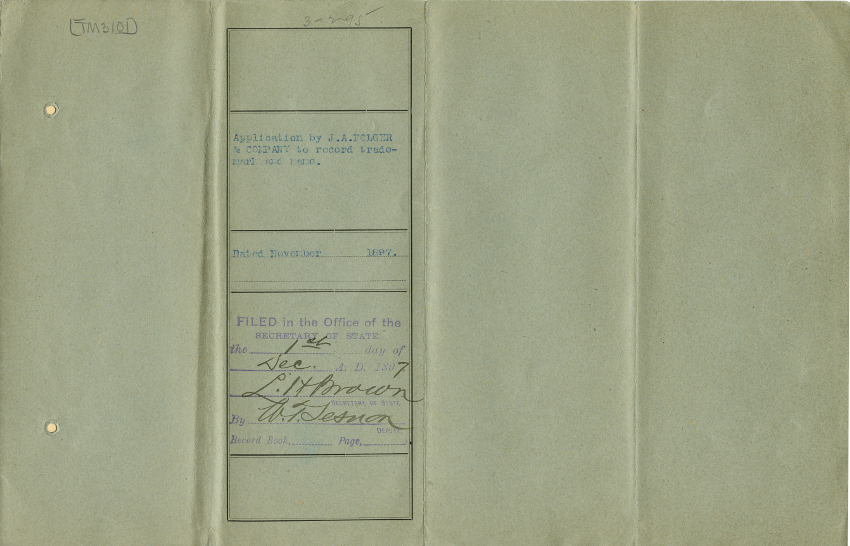 [TM3101]
3-2-95
Application by J.A.FOLGER
& COMPANY to record trade-
mark and name.
Dated November 1897.
FILED in the Office of the
SECRETARY OF STATE
the 1st day of
Dec. A. D. 1897
L. H Brown
SECRETARY OF STATE
By W. T. Sesnon
DEPUTY
Record Book, Page,